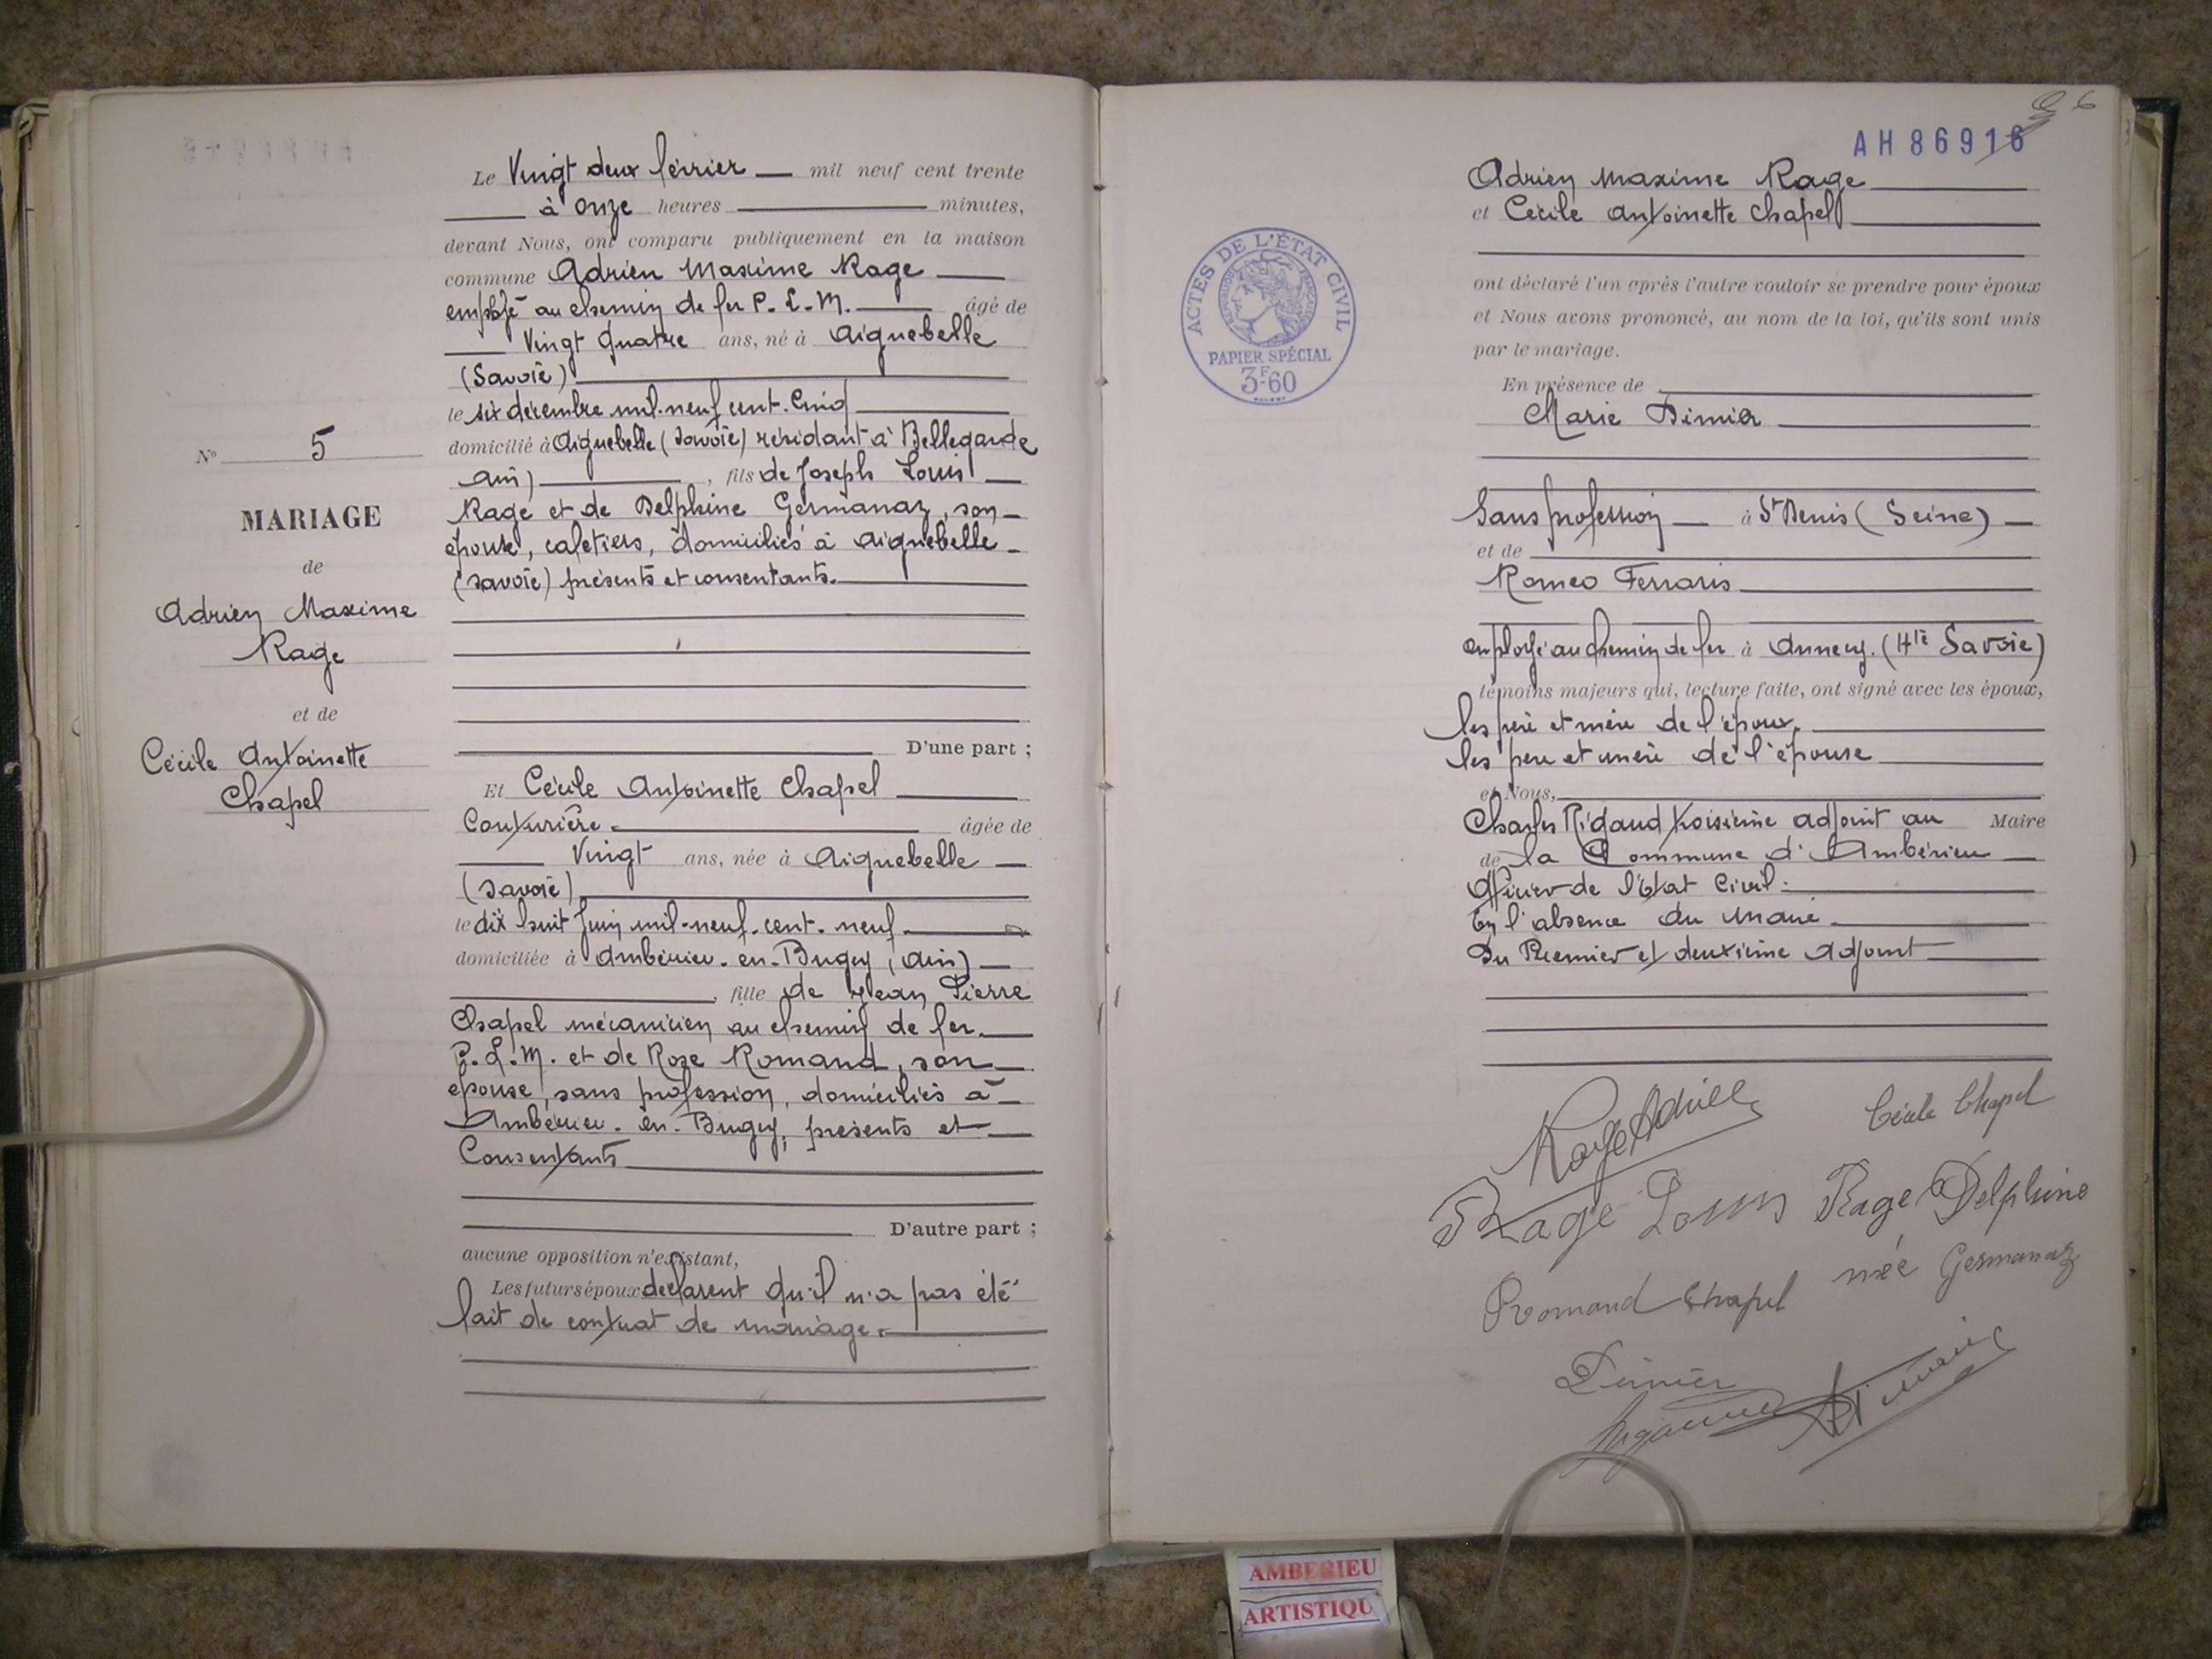 Le Vingt deux février mil neuf cent trente
à onze heures minutes,
devant Nous, ont comparu publiquement en la maison
commune Adrien Maxime Rage
employé au chemin de fer P.L.M. âgé de
Vingt quatre ans, né à Aiguebelle
(Savoie)
le six décembre mil neuf cent cinq
domicilié à Aiguebelle (Savoie) résidant à Bellegarde
Ain), fils de Joseph Louis
Rage et de Delphine Germanaz, son
épouse, cafetiers, domiciliés à Aiguebelle
(Savoie) présents et consentants.
D'une part ;
N° 5
MARIAGE
de
Adrien Maxime
Rage
et de
Cécile Antoinette
Chapel
Et Cécile Antoinette Chapel
Couturière. âgée de
Vingt ans, née à Aiguebelle
(Savoie)
le dix huit Juin mil-neuf-cent-neuf
domiciliée à Ambérieu-en-Bugey, (Ain)
, fille de Jean Pierre
Chapel mécanicien au chemin de fer
P.L.M. et de Rose Romand, son
épouse, sans profession, domiciliés à
Ambérieu-en-Bugey, présents et
Consentants
D'autre part ;
aucune opposition n'existant,
Les futurs époux déclarent qu'il n'a pas été
fait de contrat de mariage.
6
AH 86916
Adrien Maxime Rage
et Cécile Antoinette Chapel
ACTES DE L'ÉTAT CIVIL
PAPIER SPÉCIAL
3F60
ont déclaré l'un après l'autre vouloir se prendre pour époux
et Nous avons prononcé, au nom de la loi, qu'ils sont unis
par le mariage.
En présence de
Marie Dimier
Sans profession à St Denis (Seine)
et de
Romeo Ferraris
employé au chemin de fer à Annecy. (Hte Savoie)
témoins majeurs qui, lecture faite, ont signé avec les époux,
les père et mère de l'époux,
les père et mère de l'épouse
et Nous,
Charles Rigaud troisième adjoint au Maire
de la Commune d'Ambérieu
Officier de l'Etat Civil.
En l'absence du Maire
Du Premier et deuxième Adjoint
Rage Adrien
Cécile Chapel
Rage Louis
Rage Delphine
née Germanaz
Romand Chapel
Dimier
AMBERIEU
ARTISTIQU